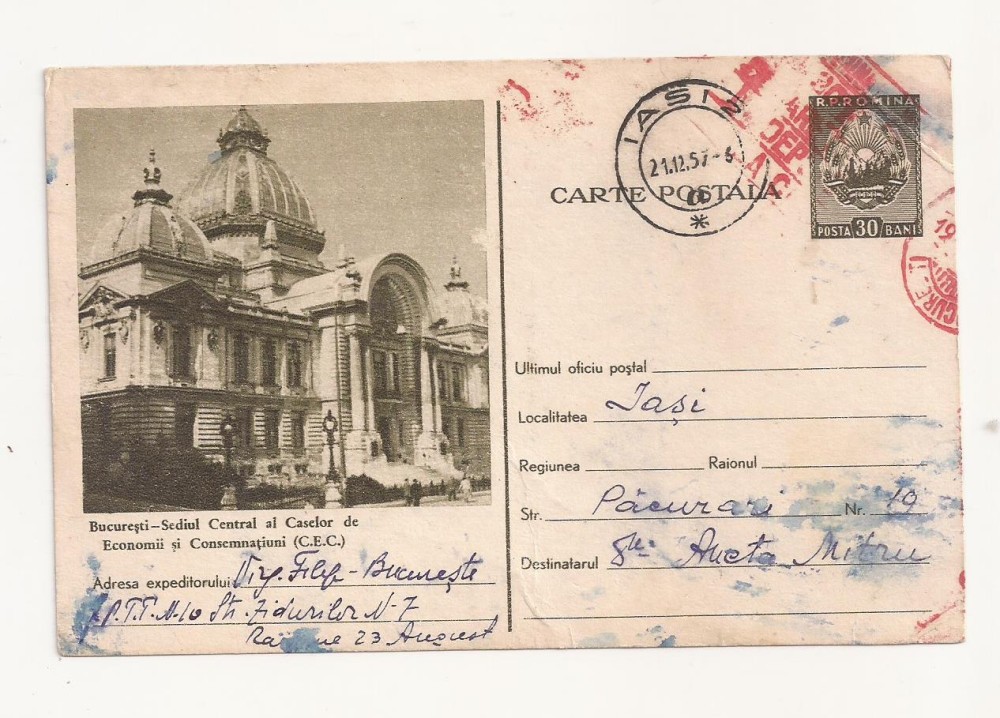 IAȘI 2
21.12.57-6
R.P.ROMINA
CARTE POSTALA
POSTA 30 BANI
Ultimul oficiu poștal
Localitatea Iași
Regiunea Raionul
Str. Păcurari Nr. 19
Destinatarul Aneta Mitru
București-Sediul Central al Caselor de
Economii și Consemnațiuni (C.E.C.)
Adresa expeditorului Virg. Filip - București
P.T.T. N-10 Str. Zidurilor N-7
23 August